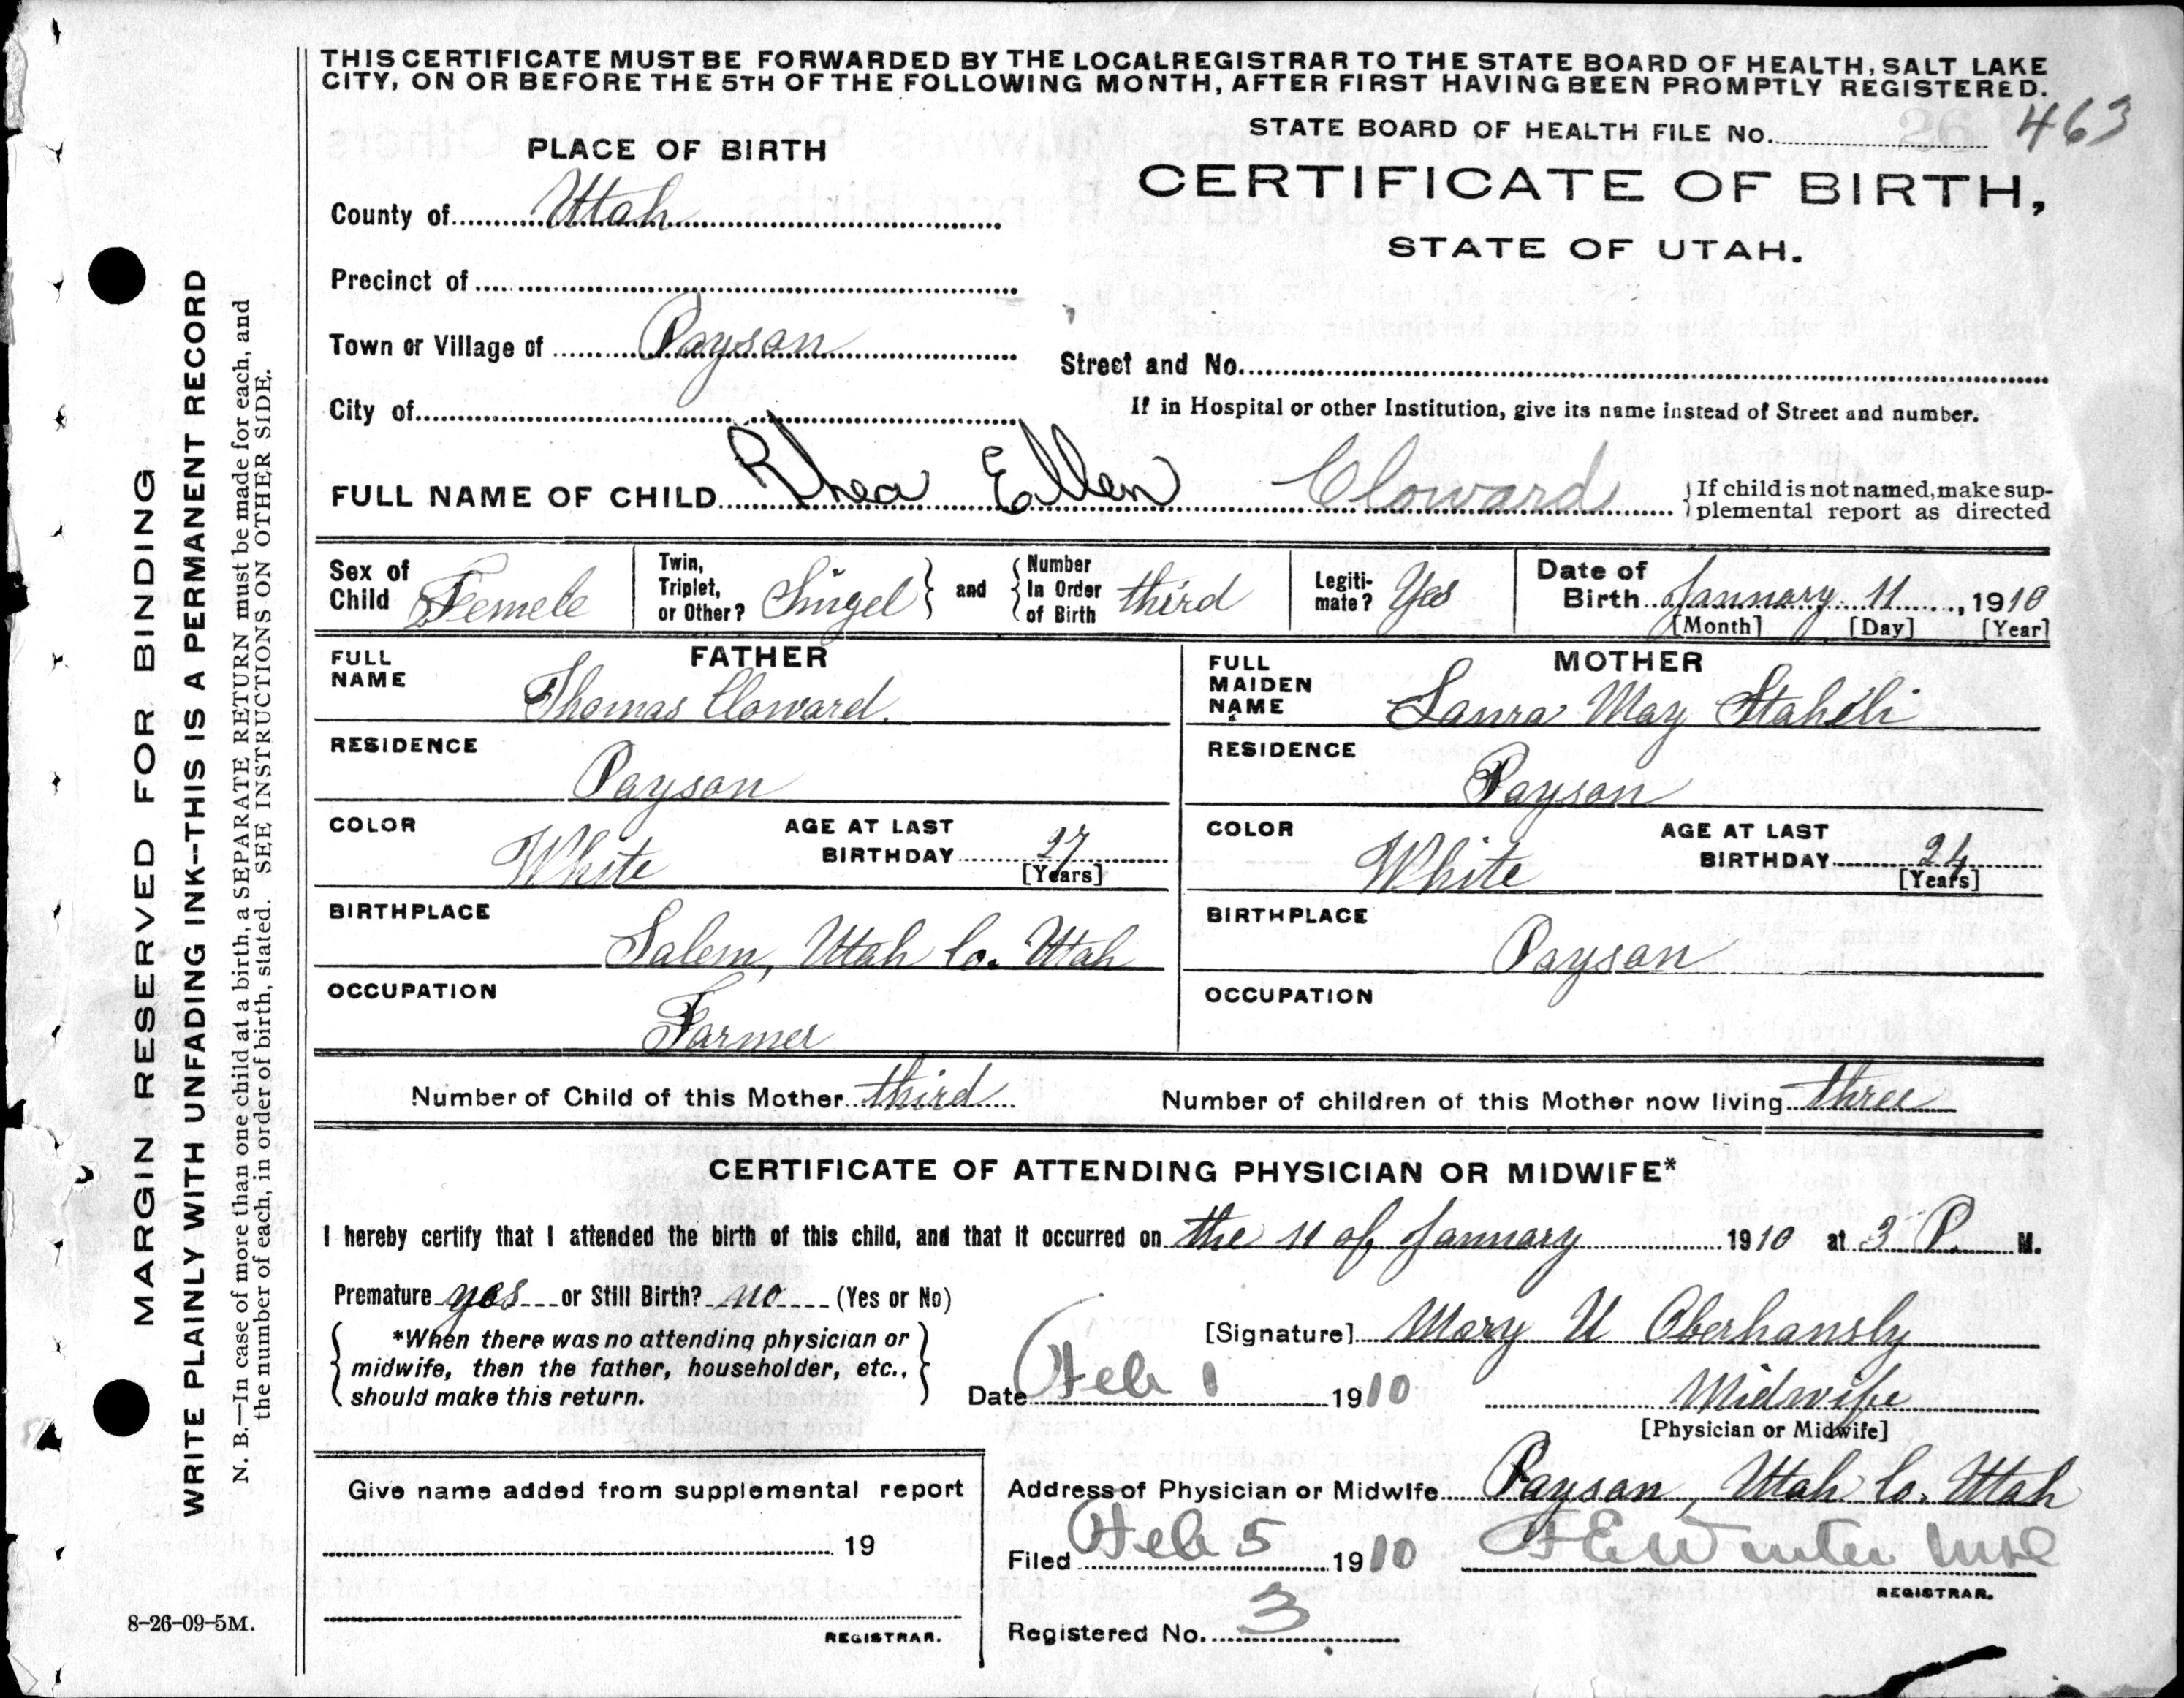 THIS CERTIFICATE MUST BE FORWARDED BY THE LOCAL REGISTRAR TO THE STATE BOARD OF HEALTH, SALT LAKE
CITY, ON OR BEFORE THE 5TH OF THE FOLLOWING MONTH, AFTER FIRST HAVING BEEN PROMPTLY REGISTERED.
STATE BOARD OF HEALTH FILE No. 463
PLACE OF BIRTH
CERTIFICATE OF BIRTH,
STATE OF UTAH.
County of Utah
Precinct of
Town or Village of Payson
Street and No.
City of
If in Hospital or other Institution, give its name instead of Street and number.
FULL NAME OF CHILD Rhea Ellen Cloward
If child is not named, make sup-
plemental report as directed
Sex of
Child Femele
Twin,
Triplet,
or Other? Singel
and
Number
In Order
of Birth third
Legiti-
mate? Yes
Date of
Birth January 11, 1910
[Month] [Day] [Year]
FATHER
FULL
NAME
Thomas Cloward.
RESIDENCE
Payson
COLOR
White
AGE AT LAST
BIRTHDAY 27
[Years]
BIRTHPLACE
Salem, Utah Co. Utah
OCCUPATION
Farmer
MOTHER
FULL
MAIDEN
NAME
Laura May Staheli
RESIDENCE
Payson
COLOR
White
AGE AT LAST
BIRTHDAY 24
[Years]
BIRTHPLACE
Payson
OCCUPATION
Number of Child of this Mother third
Number of children of this Mother now living three
CERTIFICATE OF ATTENDING PHYSICIAN OR MIDWIFE*
I hereby certify that I attended the birth of this child, and that it occurred on the 11 of January 1910 at 3 P. M.
Premature yes or Still Birth? no (Yes or No)
*When there was no attending physician or
midwife, then the father, householder, etc.,
should make this return.
[Signature] Mary U Oberhansly
Date Feb 1 1910
Midwife
[Physician or Midwife]
Give name added from supplemental report
19
REGISTRAR.
Address of Physician or Midwife Payson, Utah Co. Utah
Filed Feb 5 1910
F E Winter
REGISTRAR.
Registered No. 3
8-26-09-5M.
MARGIN RESERVED FOR BINDING
WRITE PLAINLY WITH UNFADING INK--THIS IS A PERMANENT RECORD
N. B.—In case of more than one child at a birth, a SEPARATE RETURN must be made for each, and
the number of each, in order of birth, stated. SEE INSTRUCTIONS ON OTHER SIDE.